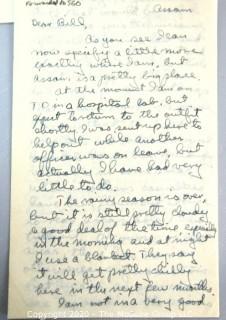 Forwarded to SGO
Assam
Dear Bill,
As you see I can
now specify a little more
exactly where I am, but
Assam is a pretty big place.
at the moment I am on
T.D. in a hospital lab. but
expect to return to the outfit
shortly. I was sent up here to
help out while another
officer was on leave, but
actually I have had very
little to do.
The rainy season is over,
but it is still pretty cloudy
a good deal of the time, especially
in the morning and at night
I use a blanket. They say
it will get pretty chilly
here in the next few months.
I am not in a very good
Copyright 2020 - The McGuire Group